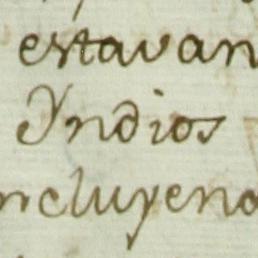 estavan
Yndios
ncluyend